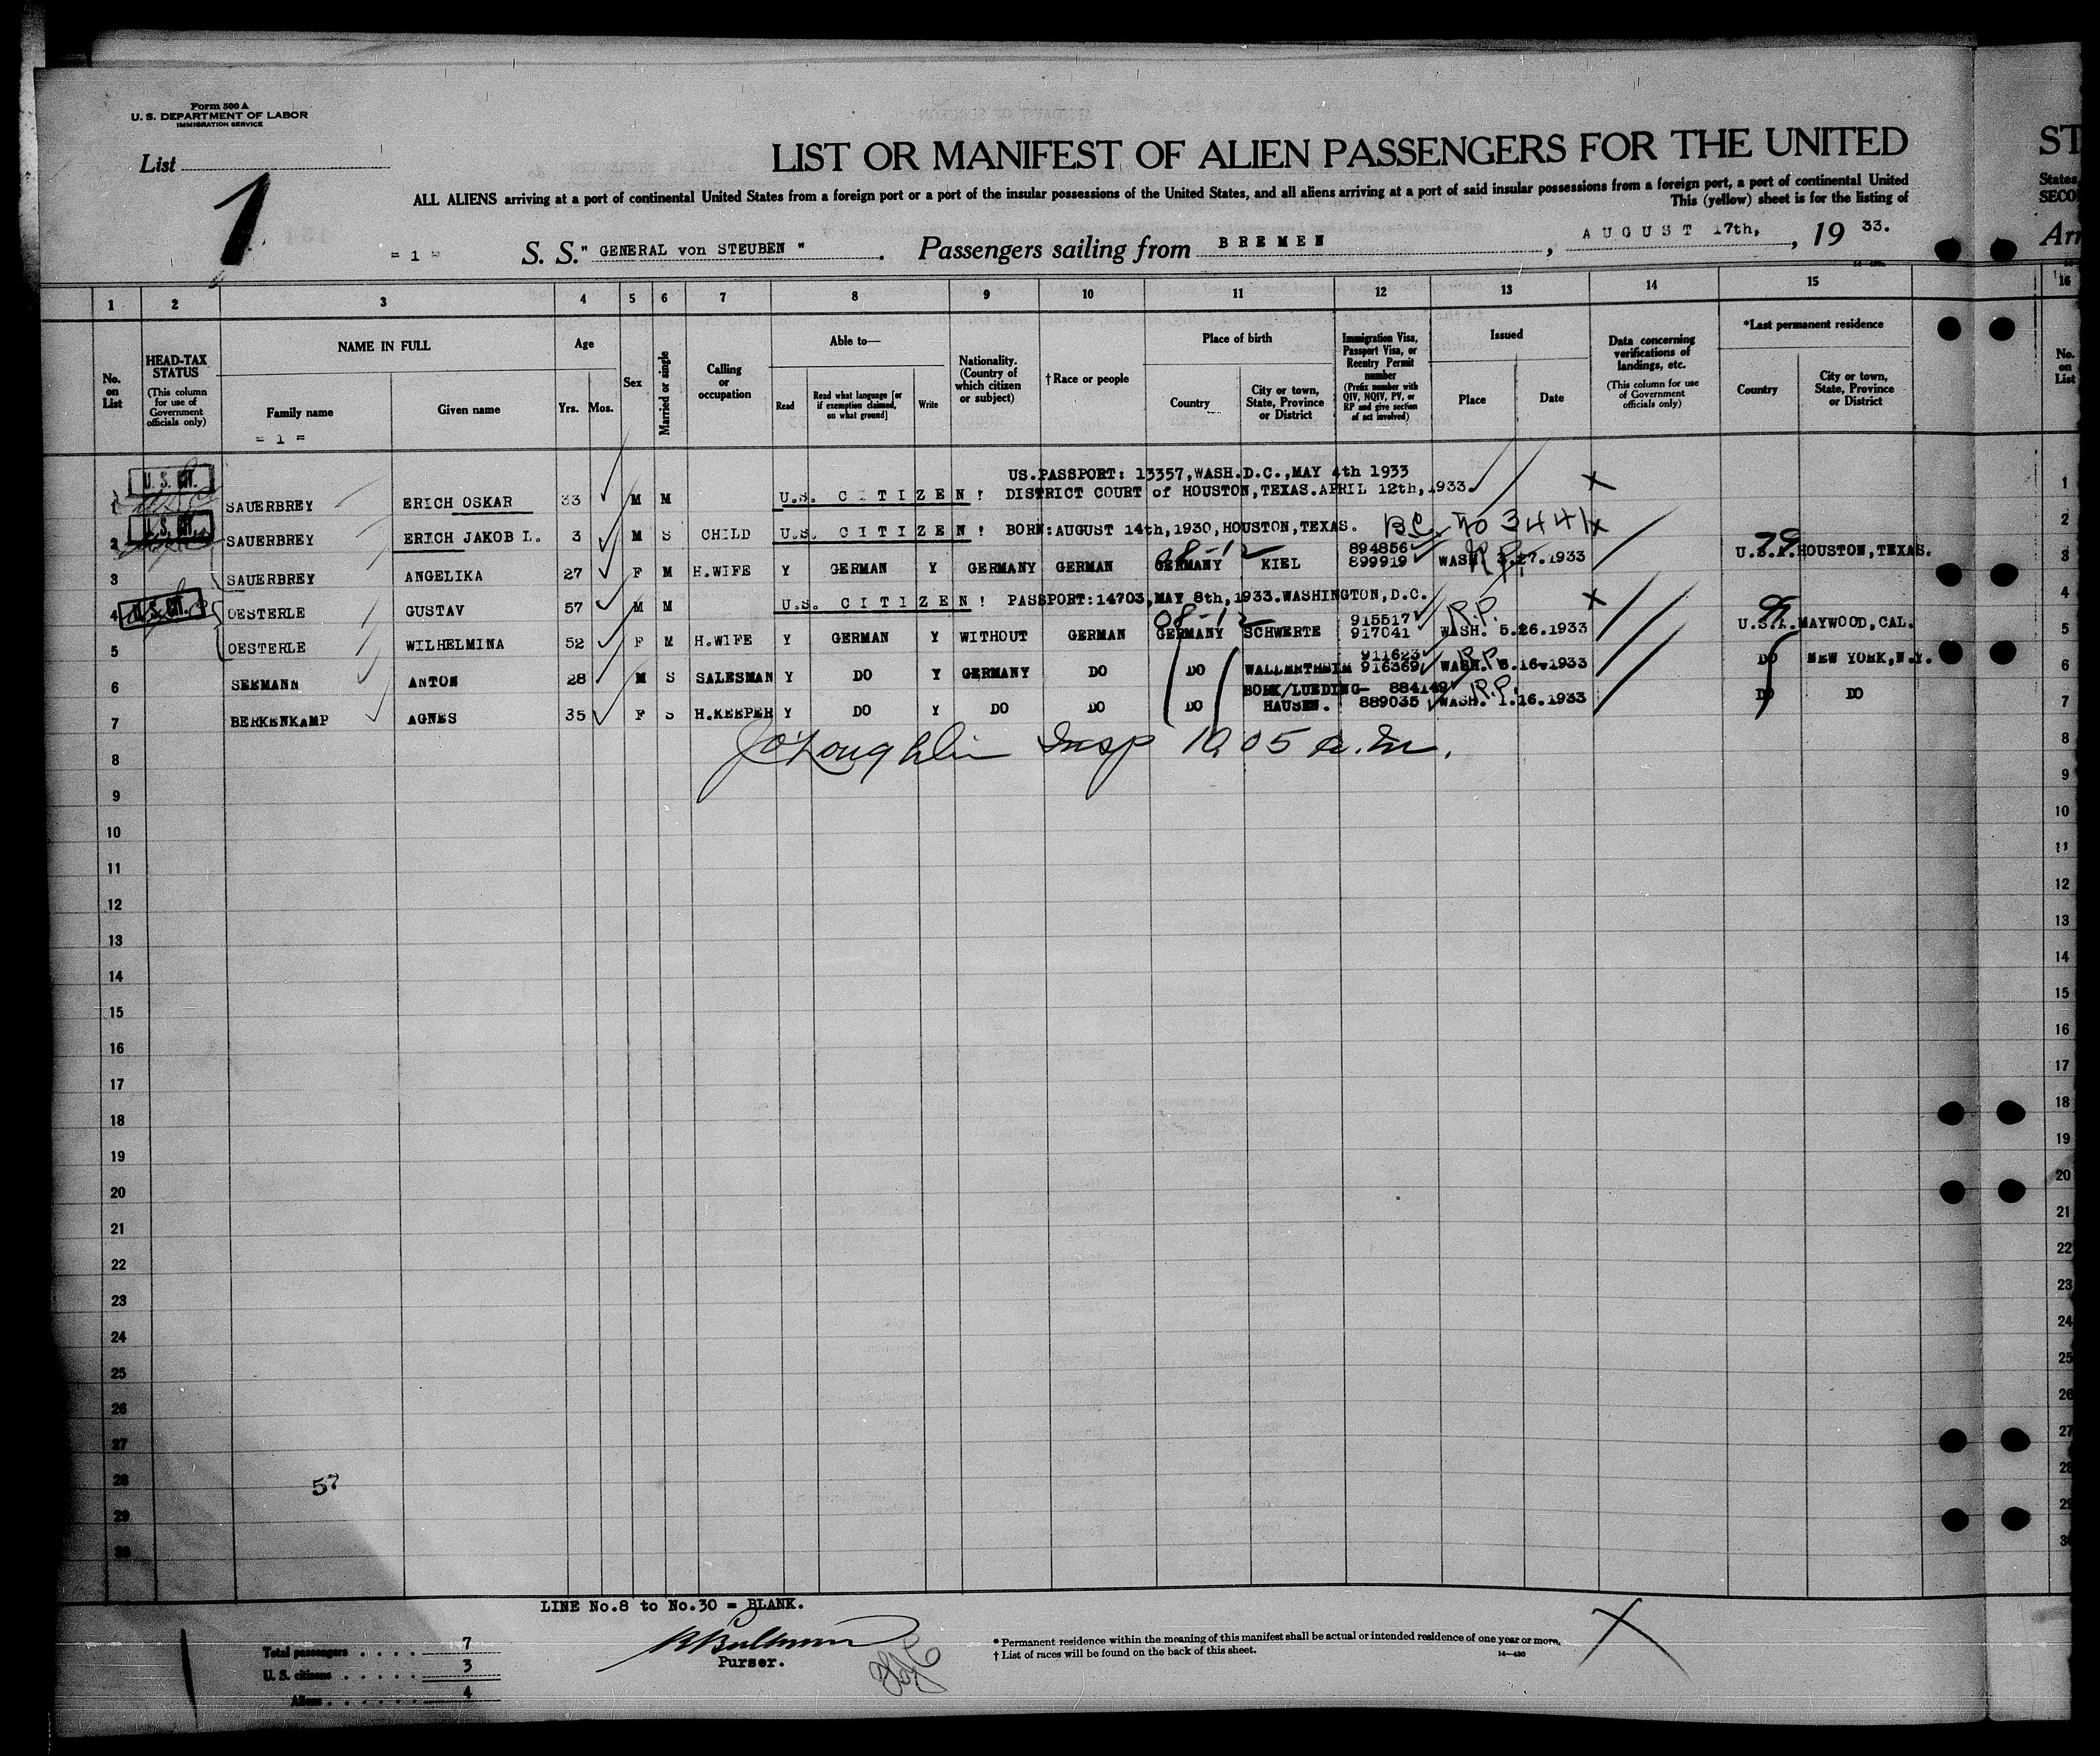 Form 500 A
U. S. DEPARTMENT OF LABOR
IMMIGRATION SERVICE
List
1
LIST OR MANIFEST OF ALIEN PASSENGERS FOR THE UNITED
ST
ALL ALIENS arriving at a port of continental United States from a foreign port or a port of the insular possessions of the United States, and all aliens arriving at a port of said insular possessions from a foreign port, a port of continental United
States,
This (yellow) sheet is for the listing of
= 1 = S. S. " GENERAL von STEUBEN " . Passengers sailing from BREMEN , AUGUST 17th, , 19 33.
1 2 3 4 5 6 7 8 9 10 11 12 13 14 15 16
No. on List
HEAD-TAX STATUS
(This column for use of Government officials only)
NAME IN FULL
Family name
Given name
= 1 =
Age
Yrs. Mos.
Sex
Married or single
Calling or occupation
Able to—
Read
Read what language [or if exemption claimed, on what ground]
Write
Nationality. (Country of which citizen or subject)
†Race or people
Place of birth
Country
City or town, State, Province or District
Immigration Visa, Passport Visa, or Reentry Permit number
(Prefix number with QIV, NQIV, PV, or RP and give section of act involved)
Issued
Place
Date
Data concerning verifications of landings, etc.
(This column for use of Government officials only)
*Last permanent residence
Country
City or town, State, Province or District
No. on List
US.PASSPORT: 13357,WASH.D.C.,MAY 4th 1933
1 U.S. CIT. SAUERBREY ERICH OSKAR 33 M M U.S. CITIZEN! DISTRICT COURT of HOUSTON,TEXAS.APRIL 12th,1933. X 1
2 U.S. CIT. SAUERBREY ERICH JAKOB L. 3 M S CHILD U.S. CITIZEN! BORN:AUGUST 14th,1930,HOUSTON,TEXAS. B.C. No 3441 X 2
894856
3 SAUERBREY ANGELIKA 27 F M H.WIFE Y GERMAN Y GERMANY GERMAN GERMANY KIEL 899919 WASH. R.P. 3.27.1933 U.S.A. HOUSTON,TEXAS. 3
4 U.S. CIT. OESTERLE GUSTAV 57 M M U.S. CITIZEN! PASSPORT:14703,MAY 8th,1933.WASHINGTON,D.C. X 4
915517 R.P.
5 OESTERLE WILHELMINA 52 F M H.WIFE Y GERMAN Y WITHOUT GERMAN GERMANY SCHWERTE 917041 WASH. 5.26.1933 U.S.A. MAYWOOD,CAL. 5
911623
6 SEEMANN ANTON 28 M S SALESMAN Y DO Y GERMANY DO DO WALLERTHEIM 916369 WASH. R.P. 5.16.1933 DO NEW YORK,N.Y. 6
BORK/LUEDING- 884149
7 BERKENKAMP AGNES 35 F S H.KEEPER Y DO Y DO DO DO HAUSEN. 889035 WASH. R.P. 1.16.1933 DO DO 7
J O'Loughlin Insp 10 05 a.m.
8 8
9 9
10 10
11 11
12 12
13 13
14 14
15 15
16 16
17 17
18 18
19 19
20 20
21 21
22 22
23 23
24 24
25 25
26 26
27 27
28 57 28
29 29
30 30
LINE No.8 to No.30 = BLANK.
Purser.
Total passengers . . . . 7
U. S. citizens . . . . . 3
Aliens . . . . . . 4
* Permanent residence within the meaning of this manifest shall be actual or intended residence of one year or more.
† List of races will be found on the back of this sheet.
14—430
X